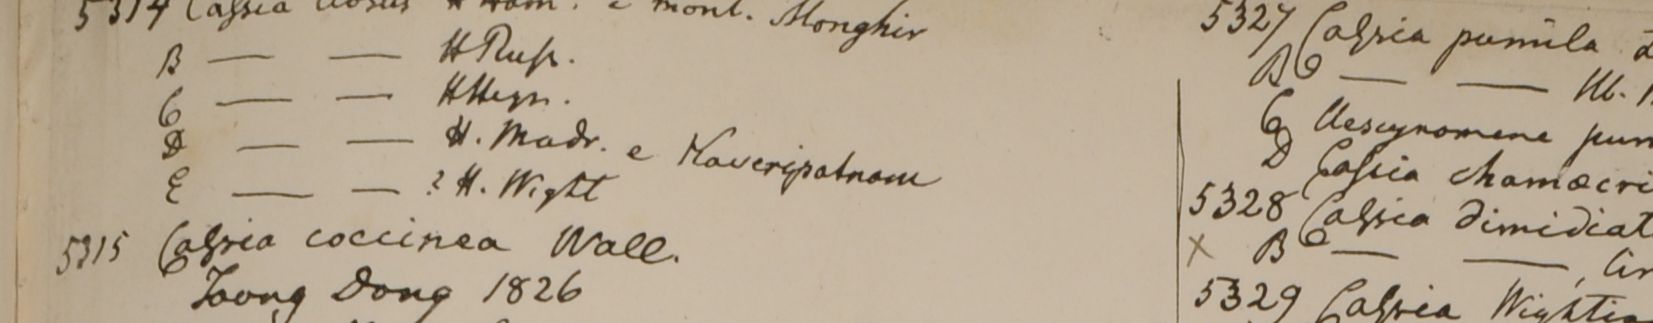 5314 Cassia H Ham. e mont. Monghir
B — — H Russ.
C — — H Heyn.
D — — H. Madr. e Kaveripatnam
E — — ? H. Wight
5315 Cassia coccinea Wall.
Toong Dong 1826
5327 Cassia pumila
B — — Hb.
C Aescynomene pum
D Cassia chamæcri
5328 Cassia dimidiat
× B — —
5329 Cassia Wightia